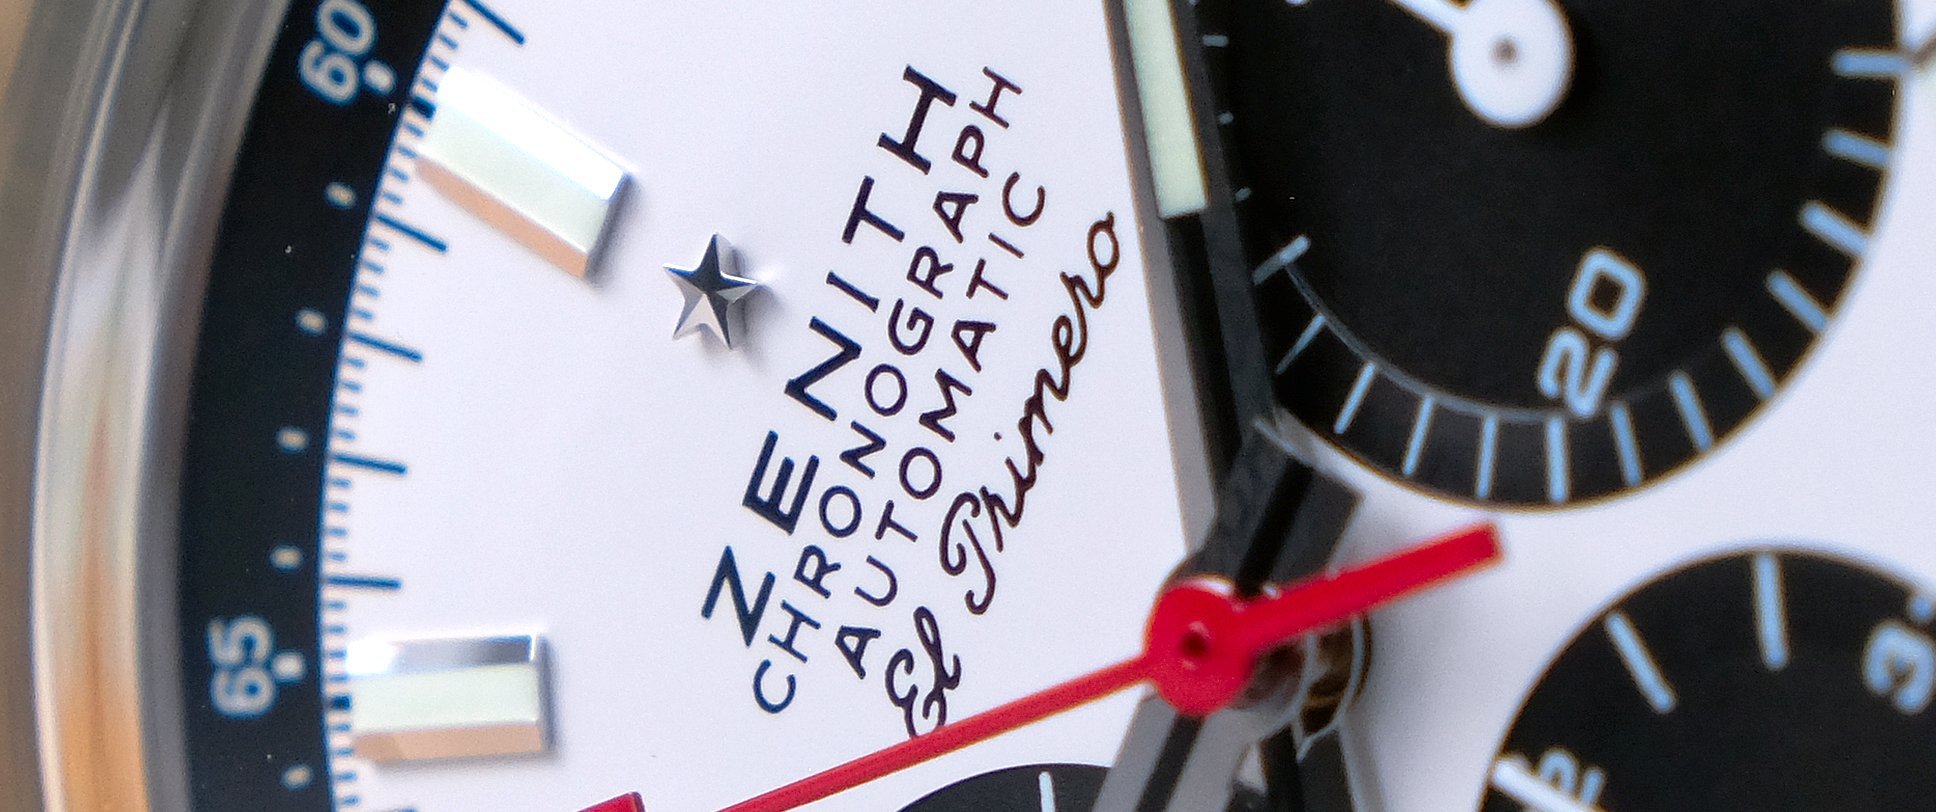 ZENITH
CHRONOGRAPH
AUTOMATIC
El Primero
60
65
20